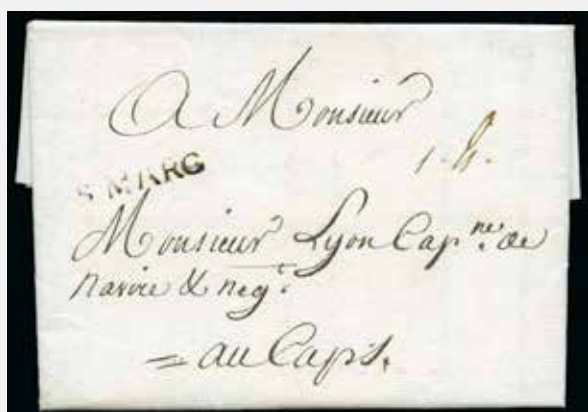 A Monsieur
S. MARC
Monsieur Lyon Cap.ne de
navire & neg.t
= au Cap./.